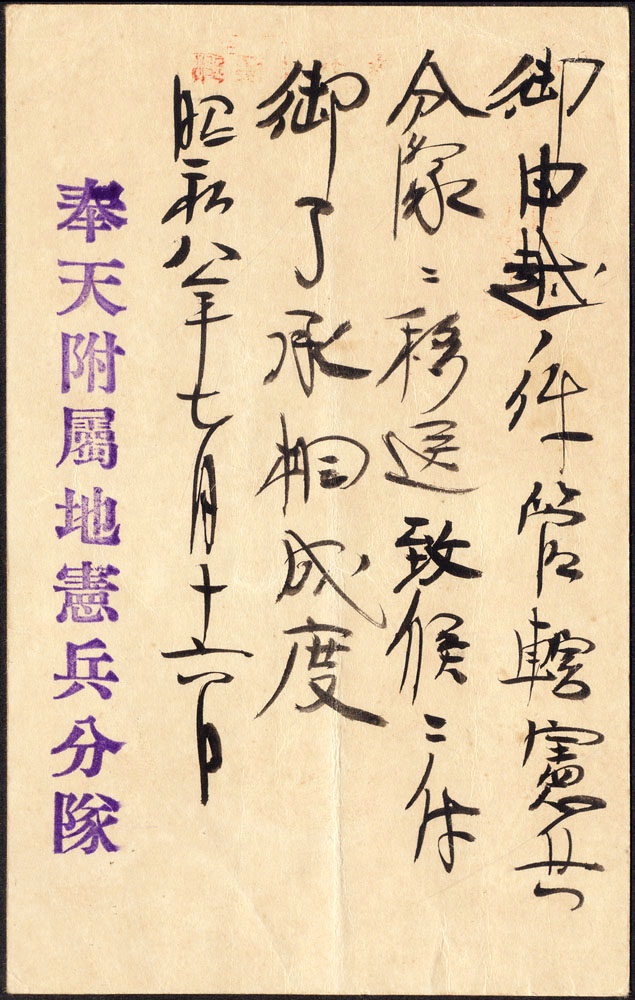 御申越ノ件管轄憲兵
分隊ニ移送致候ニ付
御了承相成度
昭和八年七月十六日
奉天附屬地憲兵分隊